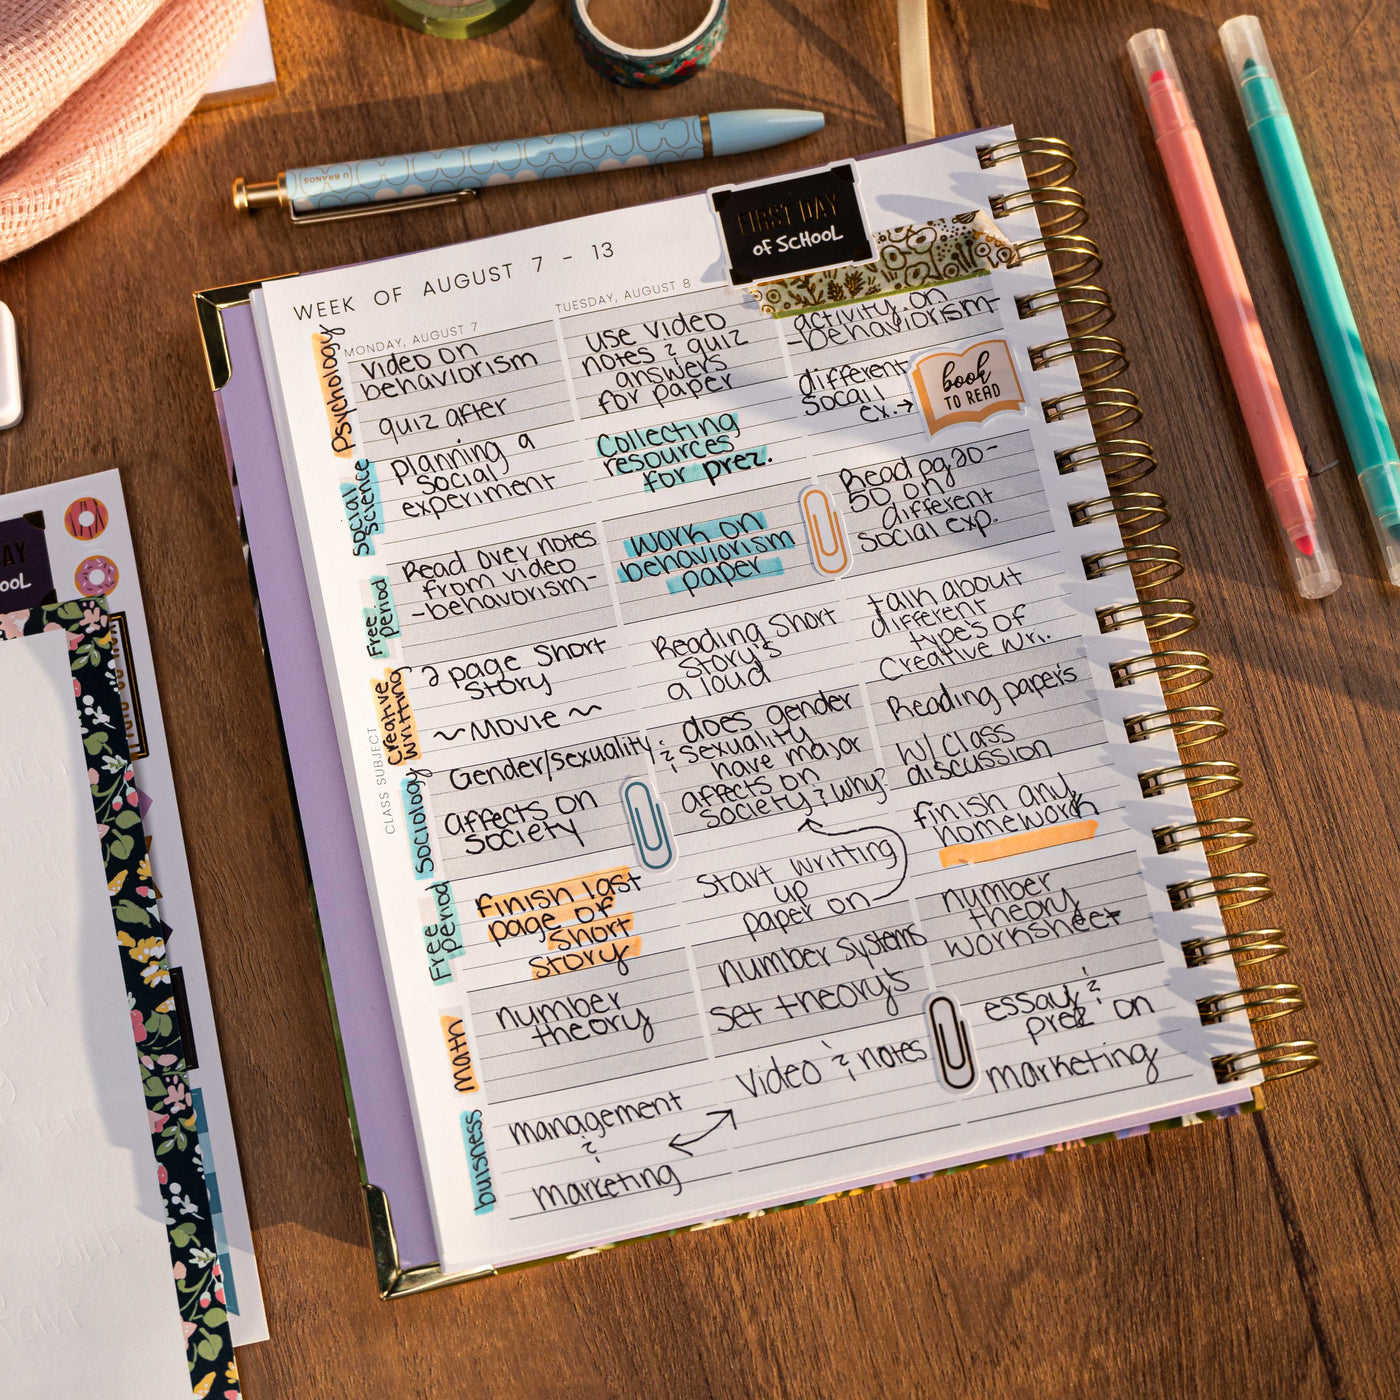 U BRANDS
FIRST DAY
OF SCHOOL
WEEK OF AUGUST 7 - 13
MONDAY, AUGUST 7
TUESDAY, AUGUST 8
CLASS SUBJECT
Psychology
video on
behaviorism
quiz after
use video
notes & quiz
answers
for paper
activity on
-behaviorism-
Social
Science
planning a
social
experiment
Collecting
resources
for prez.
different
socail
ex.→
book
TO READ
Free
Period
Read over notes
from video
-behavorism-
work on
behaviorism
paper
Read pg 20-
50 on
different
social exp.
Creative
writing
2 page short
story
~Movie~
Reading short
story's
a loud
talk about
different
types of
Creative wri.
Sociology
Gender/sexuality
affects on
society
does gender
& sexuality
have major
affects on
society & why?
Reading papers
w/ class
discussion
Free
period
finish last
page of
short
story
Start writting
up
paper on
finish any
homework
math
number
theory
number systems
set theory's
number
theory
worksheet
buisness
management
&
marketing
Video & notes
essay &
prez on
marketing
AY
OOL